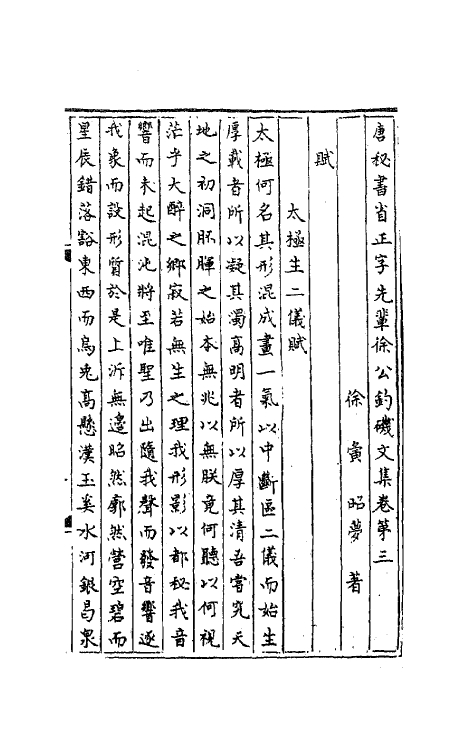 唐秘書省正字先輩徐公釣磯文集卷第三
徐夤昭夢著
賦
太極生二儀賦
太極何名其形混成畫一氣以中斷區二儀而始生
厚載者所以凝其濁高明者所以厚其清吾嘗究天
地之初洞胚腪之始本無兆以無朕竟何聽以何視
茫乎大醉之鄉寂若無生之理我形影以都秘我音
響而未起混沌將至唯聖乃出隨我聲而發音響逐
我象而設形質於是上泝無邊昭然廓然營空碧而
星辰錯落豁東西而烏兎高懸漢玉奚水河銀曷泉